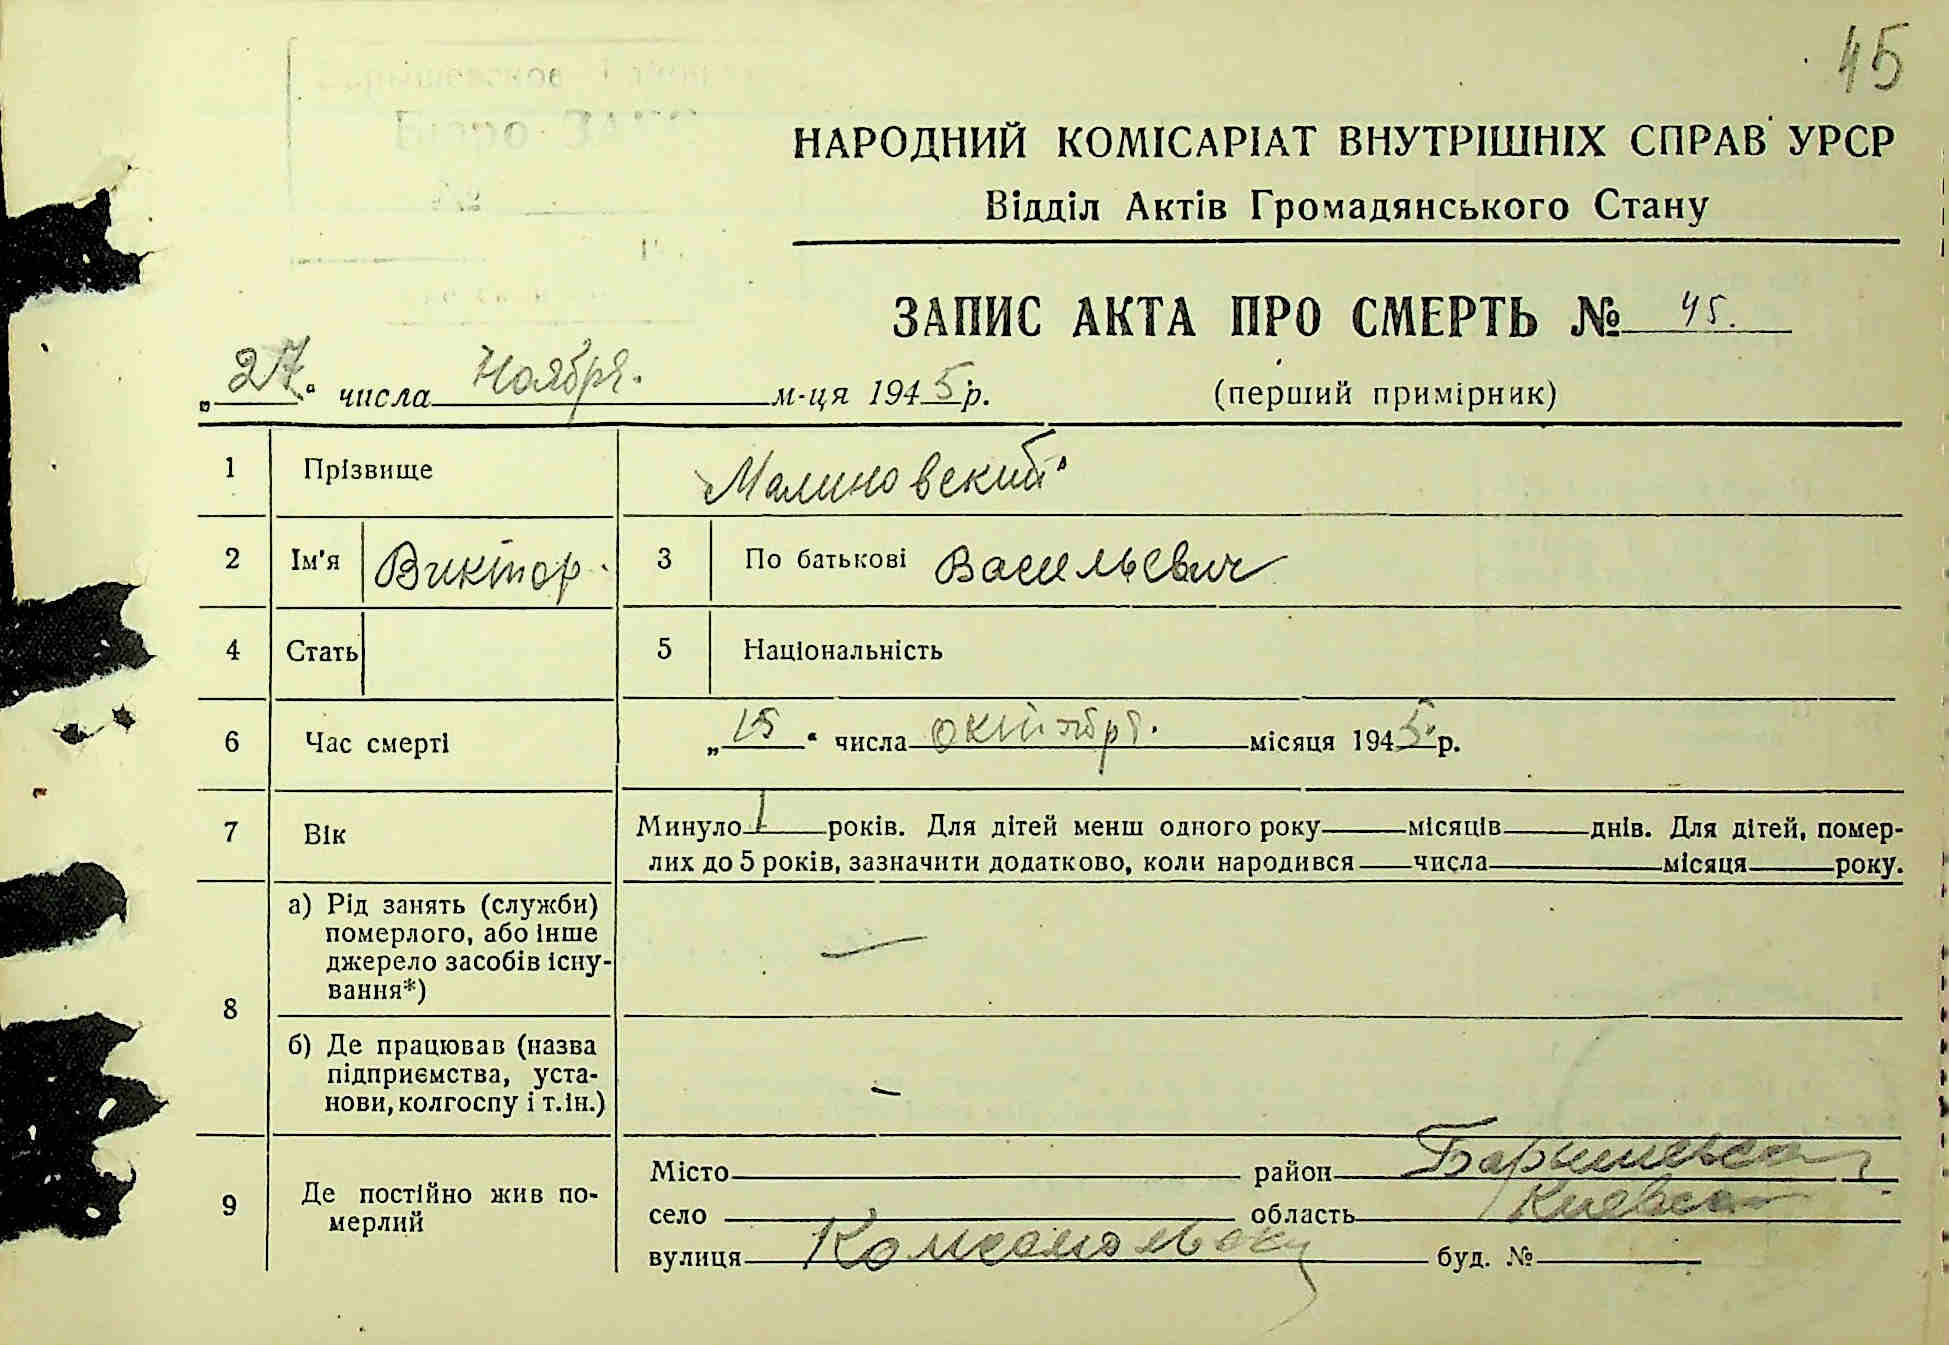 45
Бюро ЗАГС
НАРОДНИЙ КОМІСАРІАТ ВНУТРІШНІХ СПРАВ УРСР
Відділ Актів Громадянського Стану
ЗАПИС АКТА ПРО СМЕРТЬ № 45.
„27“ числа Ноября. м-ця 1945 р.
(перший примірник)
1 Прізвище Малиновский
2 Ім'я Виктор 3 По батькові Васильевич
4 Стать 5 Національність
6 Час смерті „15“ числа октября. місяця 1945 р.
7 Вік Минуло 1 років. Для дітей менш одного року місяців днів. Для дітей, помер-
лих до 5 років, зазначити додатково, коли народився числа місяця року.
8 а) Рід занять (служби)
померлого, або інше
джерело засобів існу-
вання*) —
б) Де працював (назва
підприємства, уста-
нови, колгоспу і т.ін.) –
9 Де постійно жив по-
мерлий
Місто район Барышевск
село область Киевск
вулиця буд. №